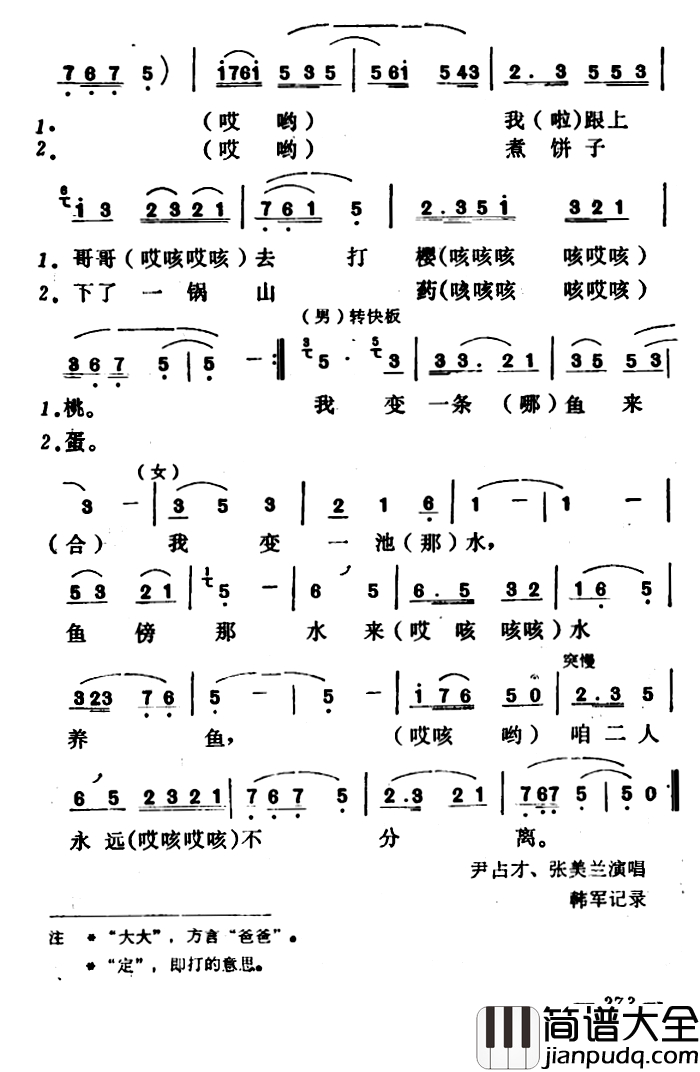 7 6 7 5 ) | i761 5 3 5 | 5 6i 5 43 | 2. 3 5 5 3
1. (哎 哟) 我(啦)跟上
2. (哎 哟) 煮 饼 子
i 3 2321 | 7 6 1 5 | 2.35i 321
1. 哥哥(哎咳哎咳)去 打 樱(咳咳咳 咳哎咳)
2. 下了 一 锅 山 药(咳咳咳 咳哎咳)
(男)转快板
3 6 7 5 | 5 - :‖ 5 · 3 | 33. 21 | 35 53
1.桃。 我 变 一条 (哪)鱼 来
2.蛋。
(女)
3 - | 3 5 3 | 2 1 6 | 1 - | 1 -
(合) 我 变 一 池(那)水,
53 21 | 5 - | 6 5 | 6. 5 32 | 16 5
鱼 傍 那 水 来(哎 咳 咳咳)水
突慢
323 76 | 5 - | 5 - | i76 50 | 2.35
养 鱼, (哎咳 哟) 咱 二 人
6 5 2321 | 7 6 7 5 | 2.3 21 | 767 5 | 5 0 ‖
永 远(哎咳哎咳)不 分 离。
尹占才、张美兰演唱
韩军记录
注 * “大大”,方言“爸爸”。
* “定”,即打的意思。
简谱大全
jianpudq.com